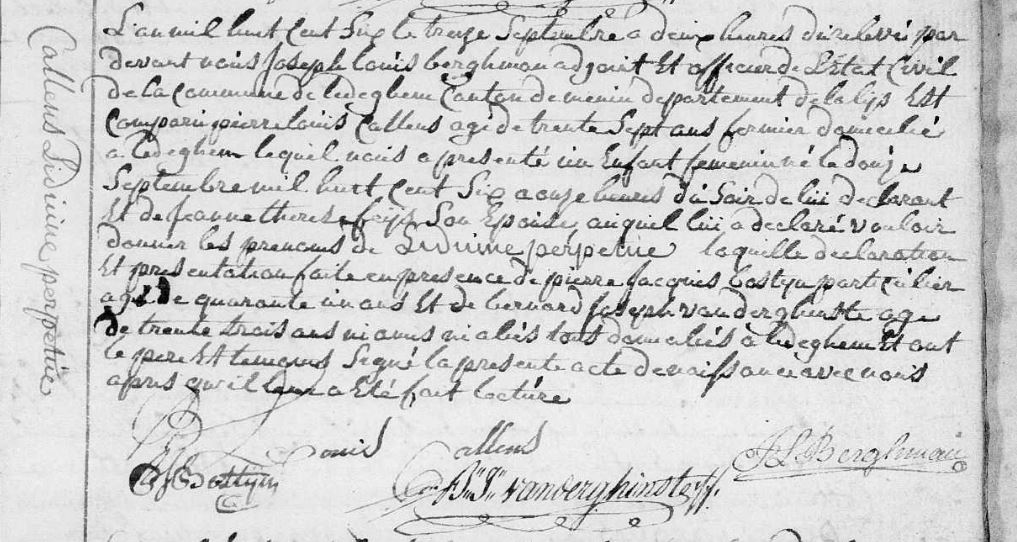 Callens Lidivine perpetúe
L'an mil huit Cent Six le treize Septembre a deux heures du relevé par
devant nous Joseph louis berghman adjoint Et officier de L'Etat Civil
de la Commune de ledeghem Canton de menin departement de la lys Est
Comparu pierre louis Callens agé de trente Sept ans fermier domicilié
a ledeghem lequel nous a presenté un Enfant femenin né le douze
Septembre mil huit Cent Six a onze heures du Soir de lui declarant
Et de Jeanne therese Son Epouse, auquel lui a declaré vouloir
donner les prenoms de laquelle declaration
Et presentation faite en presence de pierre Jacques Costyn particulier
agé de quarante un ans Et de bernard Joseph vanderghinste age
de trente trois ans ni amis ni aliés tous domicilies a ledeghem Et ont
le pere Et temoins Signé la presente acte de naissance avec nous
apris qu'il leur a Eté fait lecture
Louis Callens
JLBerghman
vanderghinste